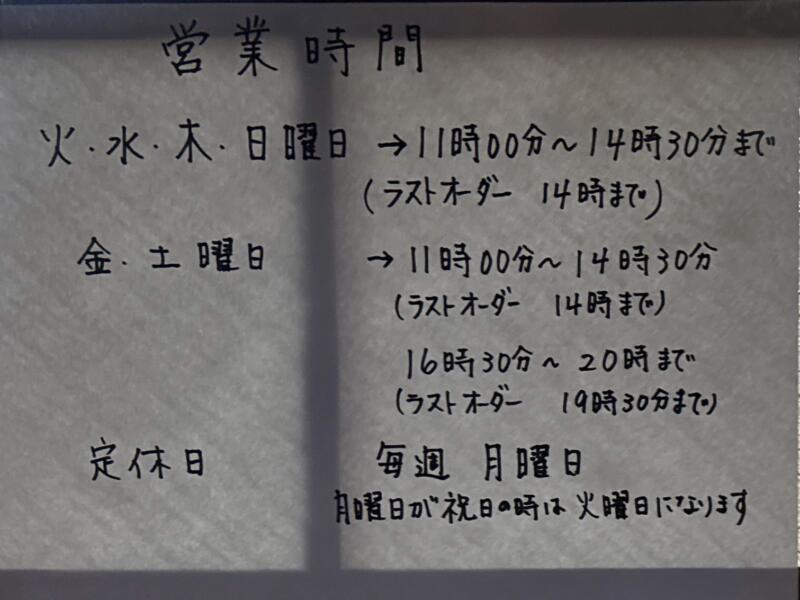 営業時間
火・水・木・日曜日 →11時00分～14時30分まで
(ラストオーダー 14時まで)
金・土曜日 →11時00分～14時30分
(ラストオーダー 14時まで)
16時30分～20時まで
(ラストオーダー 19時30分まで)
定休日 毎週 月曜日
月曜日が祝日の時は火曜日になります